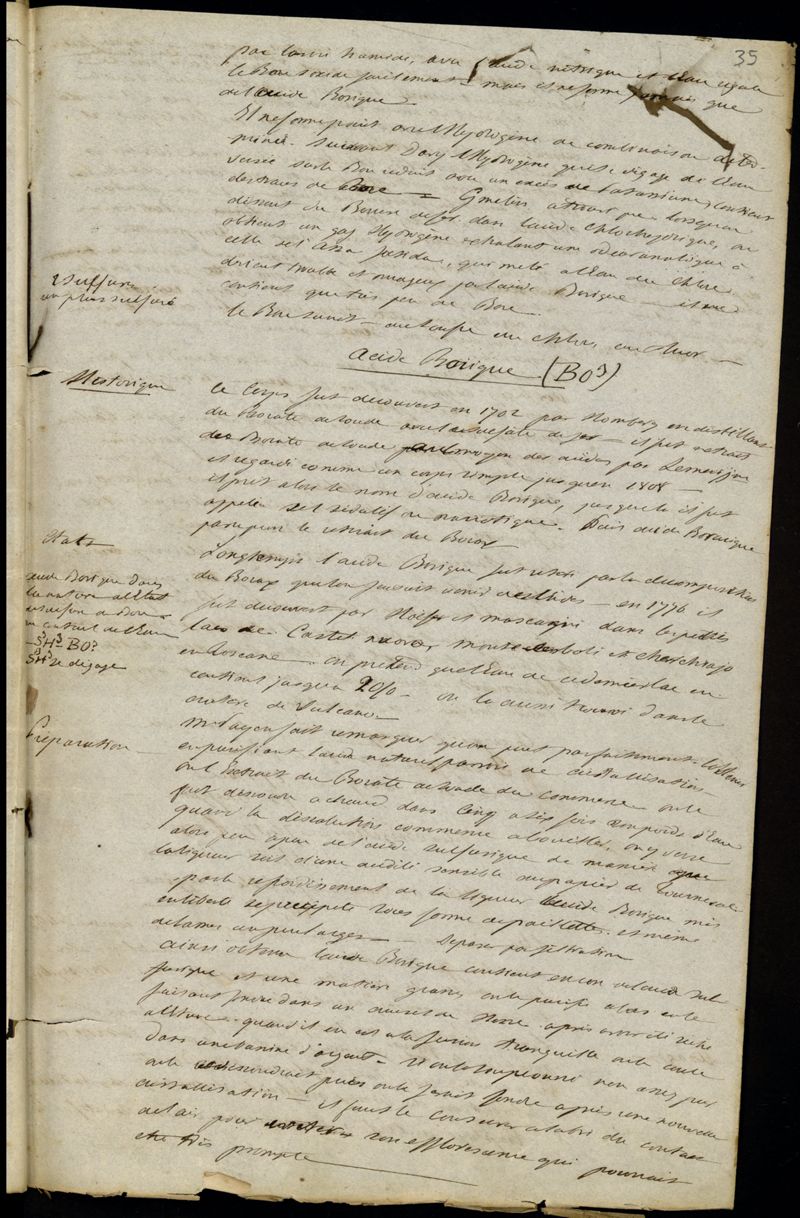 35
par l'acide nitrique et l'eau régale
le Bore s'oxide facilement — mais il ne forme jamais que
de l'acide Borique.
Il ne forme point avec l'hydrogène de combinaison
suivant Davy l'hydrogène qui se dégage de l'Eau
versée sur le Bore réduit avec un excès de Potassium, contient
des traces de Bore = Gmelin assure que lorsqu'on
dissout du Borure de fer dans l'acide Chlorhydrique, on
obtient un gaz Hydrogène exhalant une odeur analogue à
celle de l'assa foetida, qui mêlé à l'Eau de Chlore
devient trouble et nuageux par l'acide Borique
contient que très peu de Bore.
le Bore s'unit au Soufre au chlore, au fluor —
1 sulfure
un plus sulfuré
acide Borique (BO³)
Historique
Ce Corps fut découvert en 1702 par Homberg en distillant
du Borate de Soude avec le sulfate de fer — il fut extrait
du Borate de Soude par le moyen des acides par Lemery
et regardé comme un corps simple jusqu'en 1808 —
il prit alors le nom d'acide Borique, jusque là il fut
appelé sel sédatif ou narcotique. Puis acide Boracique
parce qu'on le retirait du Borax
Etats
Longtemps l'acide Borique fut retiré par la décomposition
du Borax qu'on faisait venir des Indes — en 1776 il
fut découvert par Höfer et Mascagni dans les petits
lacs de Castel nuovo, Monte Cerboli et Cherchiajo
en Toscane. on prétend que l'Eau de ce dernier lac en
contient jusqu'à 20/0 — on l'a aussi trouvé dans le
cratère de Vulcano —
acide Borique dans
la nature à l'état
de sulfure de Bore
au contact de l'Eau
S³H³ BO³
S³H³ se dégage
Préparation
Mr Payen fait remarquer qu'on peut parfaitement l'obtenir
en purifiant l'acide naturel par voie de cristallisation —
on l'Extrait du Borate de soude du commerce — on le
fait dissoudre à chaud dans Cinq à six fois son poids d'Eau
quand la dissolution commence à bouillir, on y verse
alors peu à peu de l'acide sulfurique de manière que
la liqueur soit d'une acidité sensible au papier de Tournesol
par le refroidissement de la liqueur l'acide Borique mis
en liberté se précipite sous forme de paillettes et même
de lames un peu larges — Séparer par filtration
ainsi obtenu l'acide Borique contient encore de l'acide sul
furique et une matière grasse, on le purifie alors en le
faisant fondre dans un creuset de Hesse après avoir été séché
à l'étuve — quand il est en fusion tranquille on le coule
dans une bassine d'argent — Si on le soupçonne non assez pur
on le redissoudrait puis on le ferait fondre après une nouvelle
cristallisation — il faut le conserver à l'abri du contact
de l'air pour éviter son efflorescence qui pourrait
être très prompte